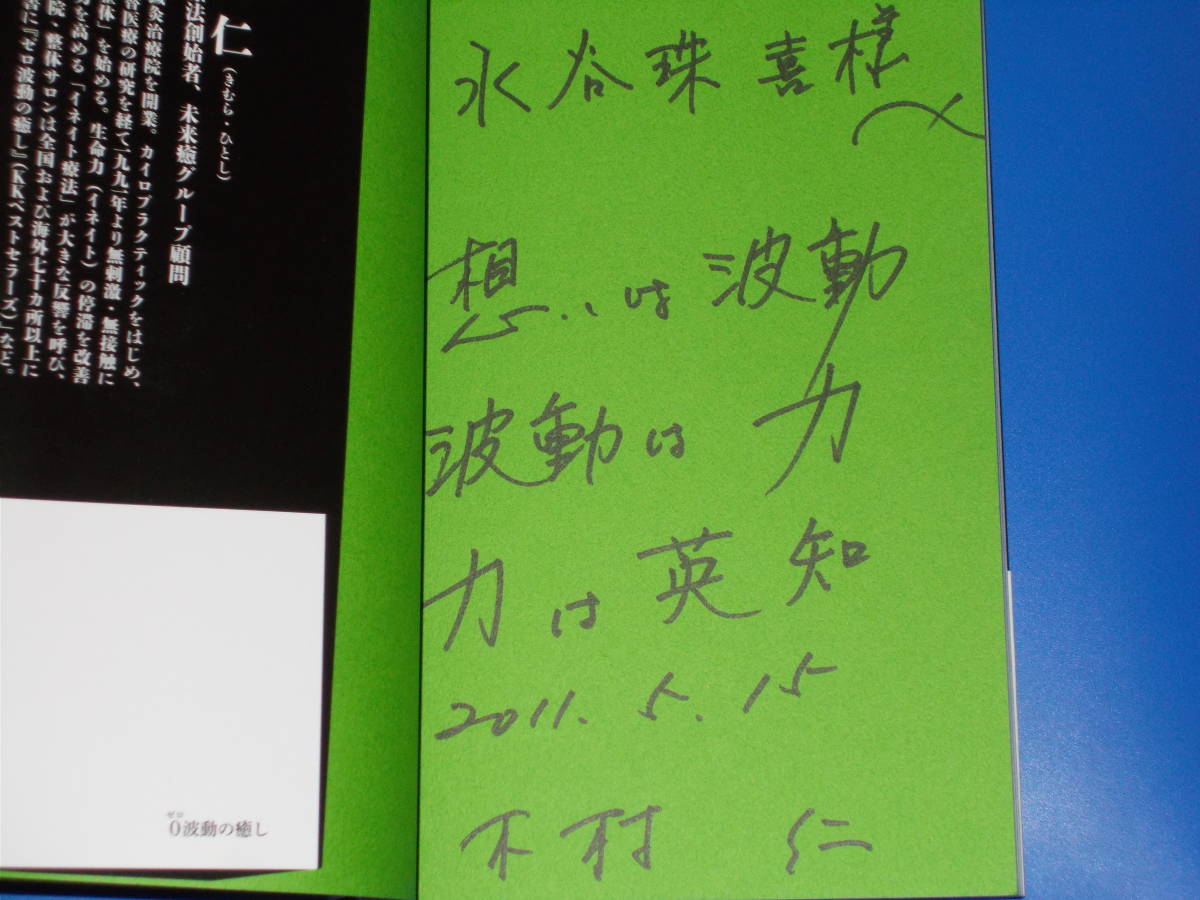 仁(きむら・ひとし)
法創始者、未来癒グループ顧問
灸治療院を開業。カイロプラクティックをはじめ、
替医療の研究を経て一九九一年より無刺激・無接触に
体」を始める。生命力(イネイト)の停滞を改善
力を高める「イネイト療法」が大きな反響を呼び、
院・整体サロンは全国および海外七十カ所以上に
書に『ゼロ波動の癒し』(KKベストセラーズ)」など。
0波動の癒し
ゼロ
水谷珠喜様へ
想いは波動
波動は力
力は英知
2011.5.15
木村 仁